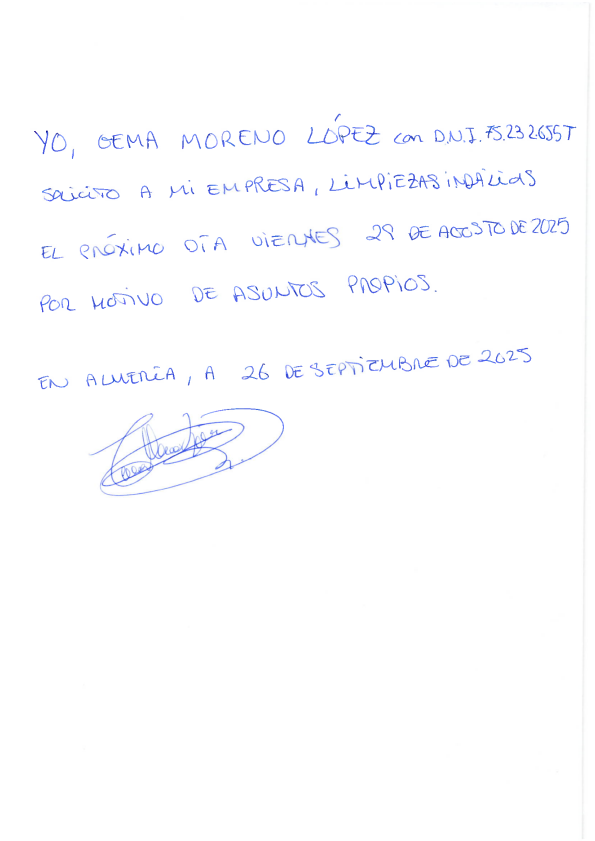 YO, GEMA MORENO LÓPEZ con D.N.I. 75.232.655T
SOLICITO A MI EMPRESA, LIMPIEZAS INDÁLICAS
EL PRÓXIMO DÍA VIERNES 29 DE AGOSTO DE 2025
POR MOTIVO DE ASUNTOS PROPIOS.
EN ALMERÍA, A 26 DE SEPTIEMBRE DE 2025